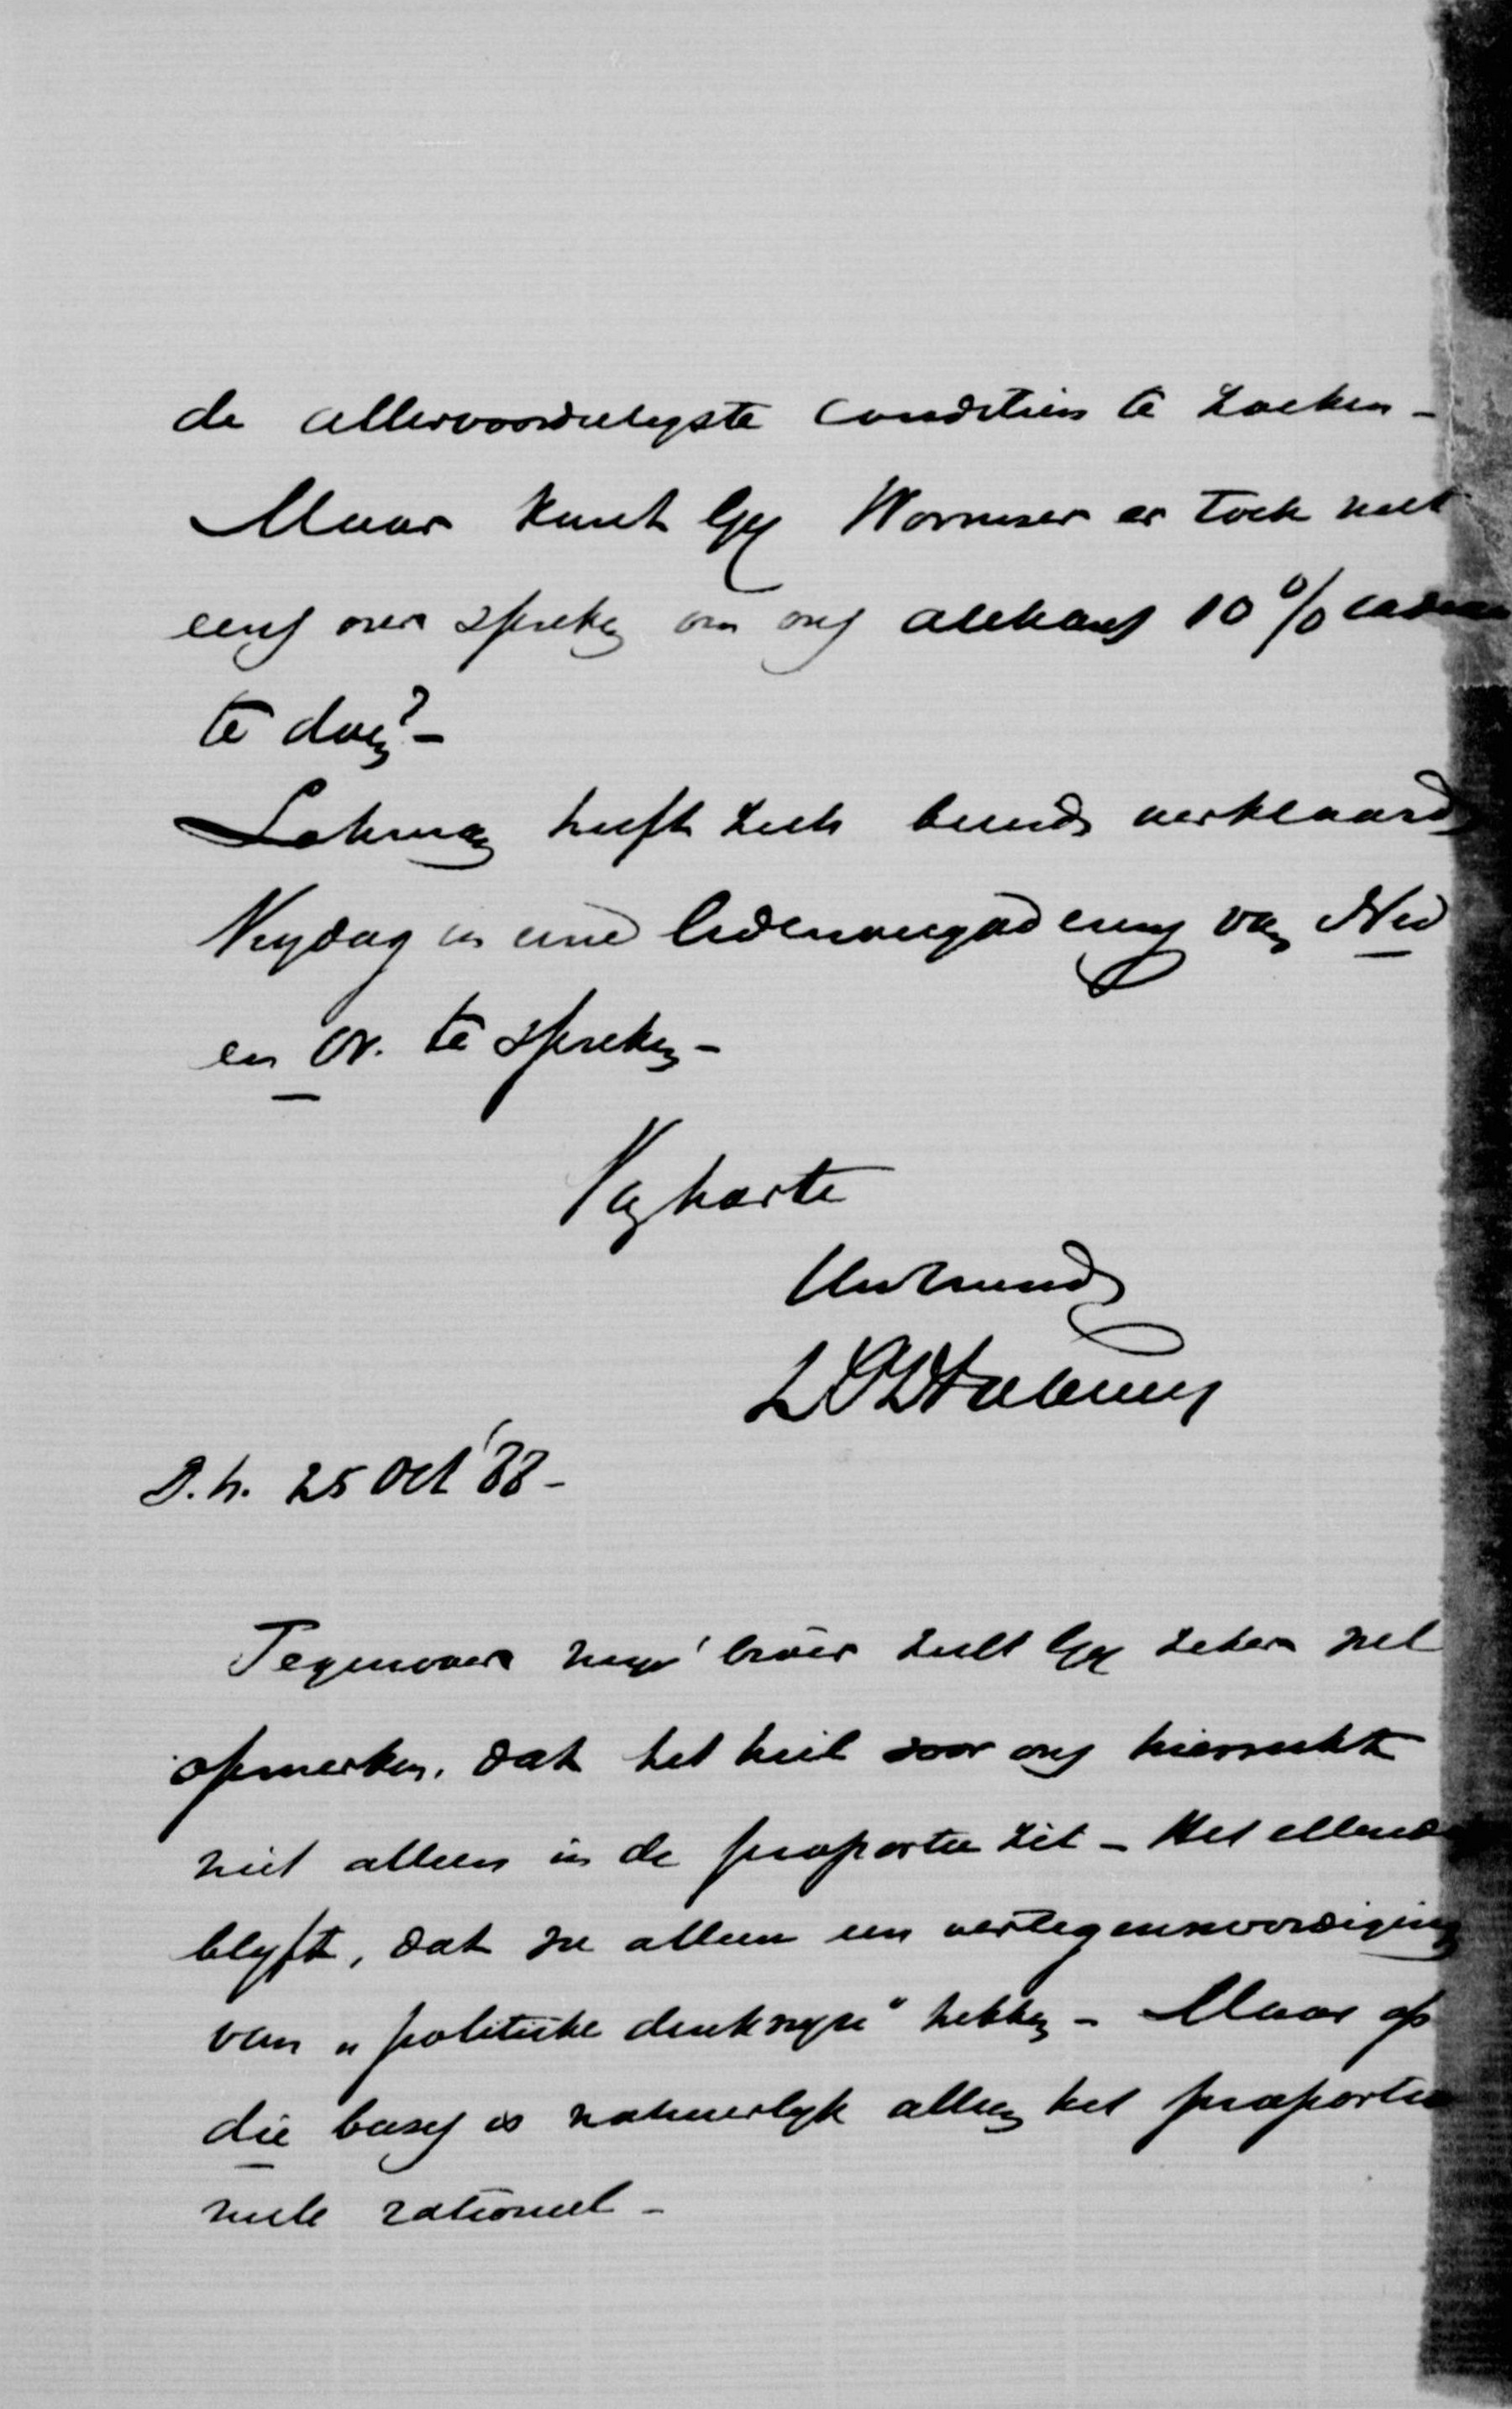 de allervoordeeligste conditiën te zoeken -
Maar kunt Gij Wormser er toch niet
eens over spreken om ons althans 10 % cadeau
te doen? -
Lohman heeft zich bereid verklaard
Vrijdag in eene ledenvergadering van Ned
en Or. te spreken -
Van harte
Uw vriend
D.h. 25 Oct '88 -
Tegenover mijn broer zult Gij zeker wel
opmerken, dat het heil voor ons hierin
niet alleen in de proportie zit - Het ellendige
blijft, dat we alleen een vertegenwoordiging
van „politieke denkwijze" hebben - Maar op
die basis is natuurlijk alleen het proportio
neele rationeel -